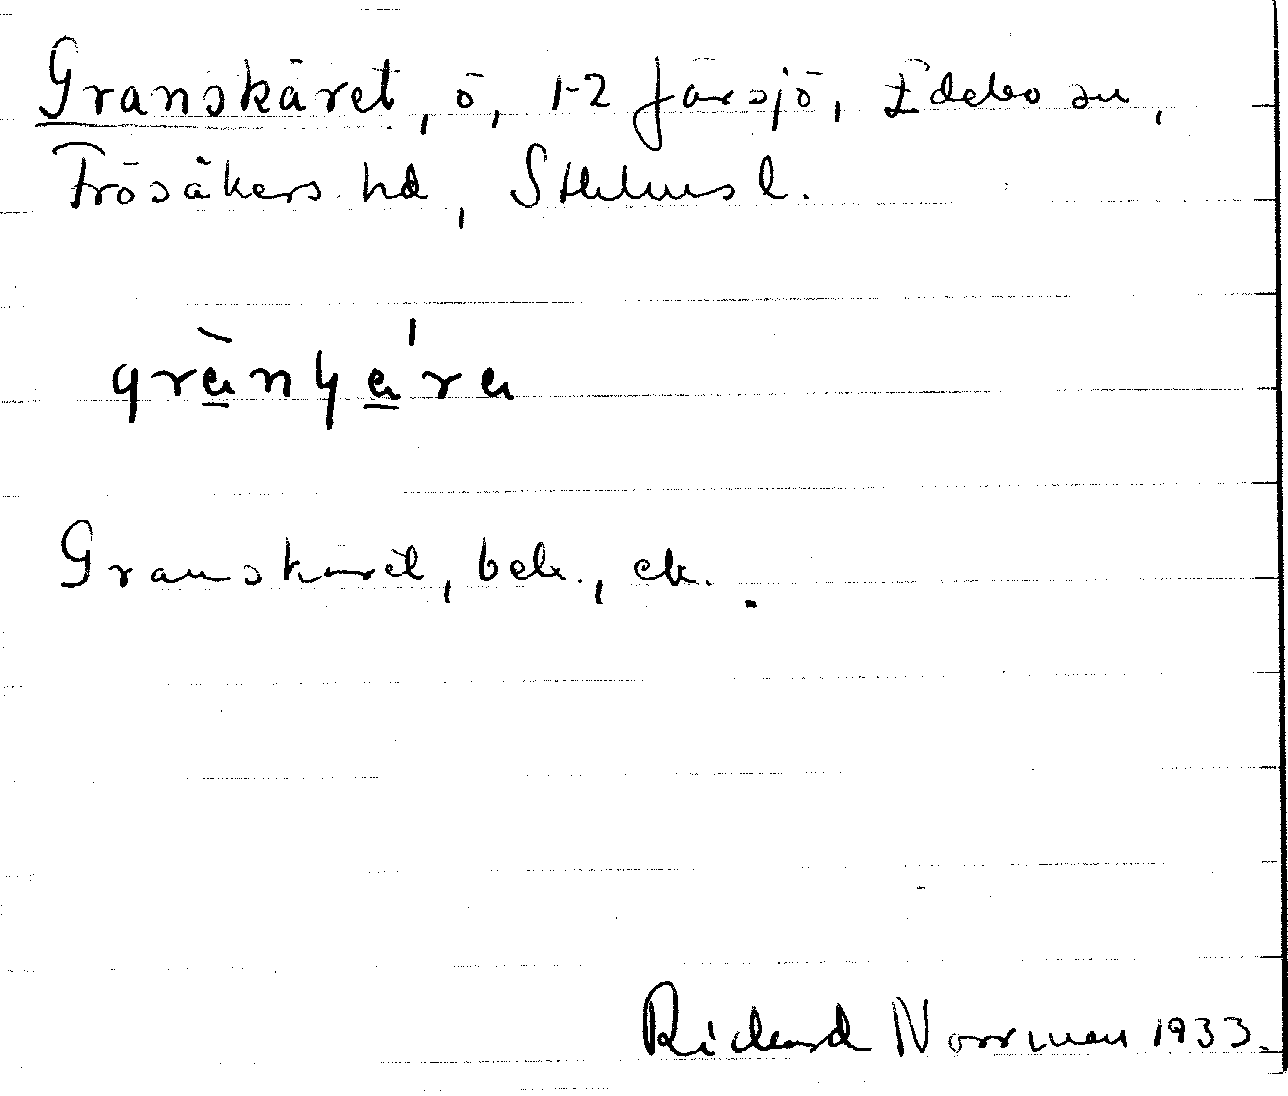 Granskäret, ö, 1-2 Järsjö, Edebo sn,
Frösåkers hd, Sthlms l.
Granskäret, bek., ek.
Rickard Norrman 1933.